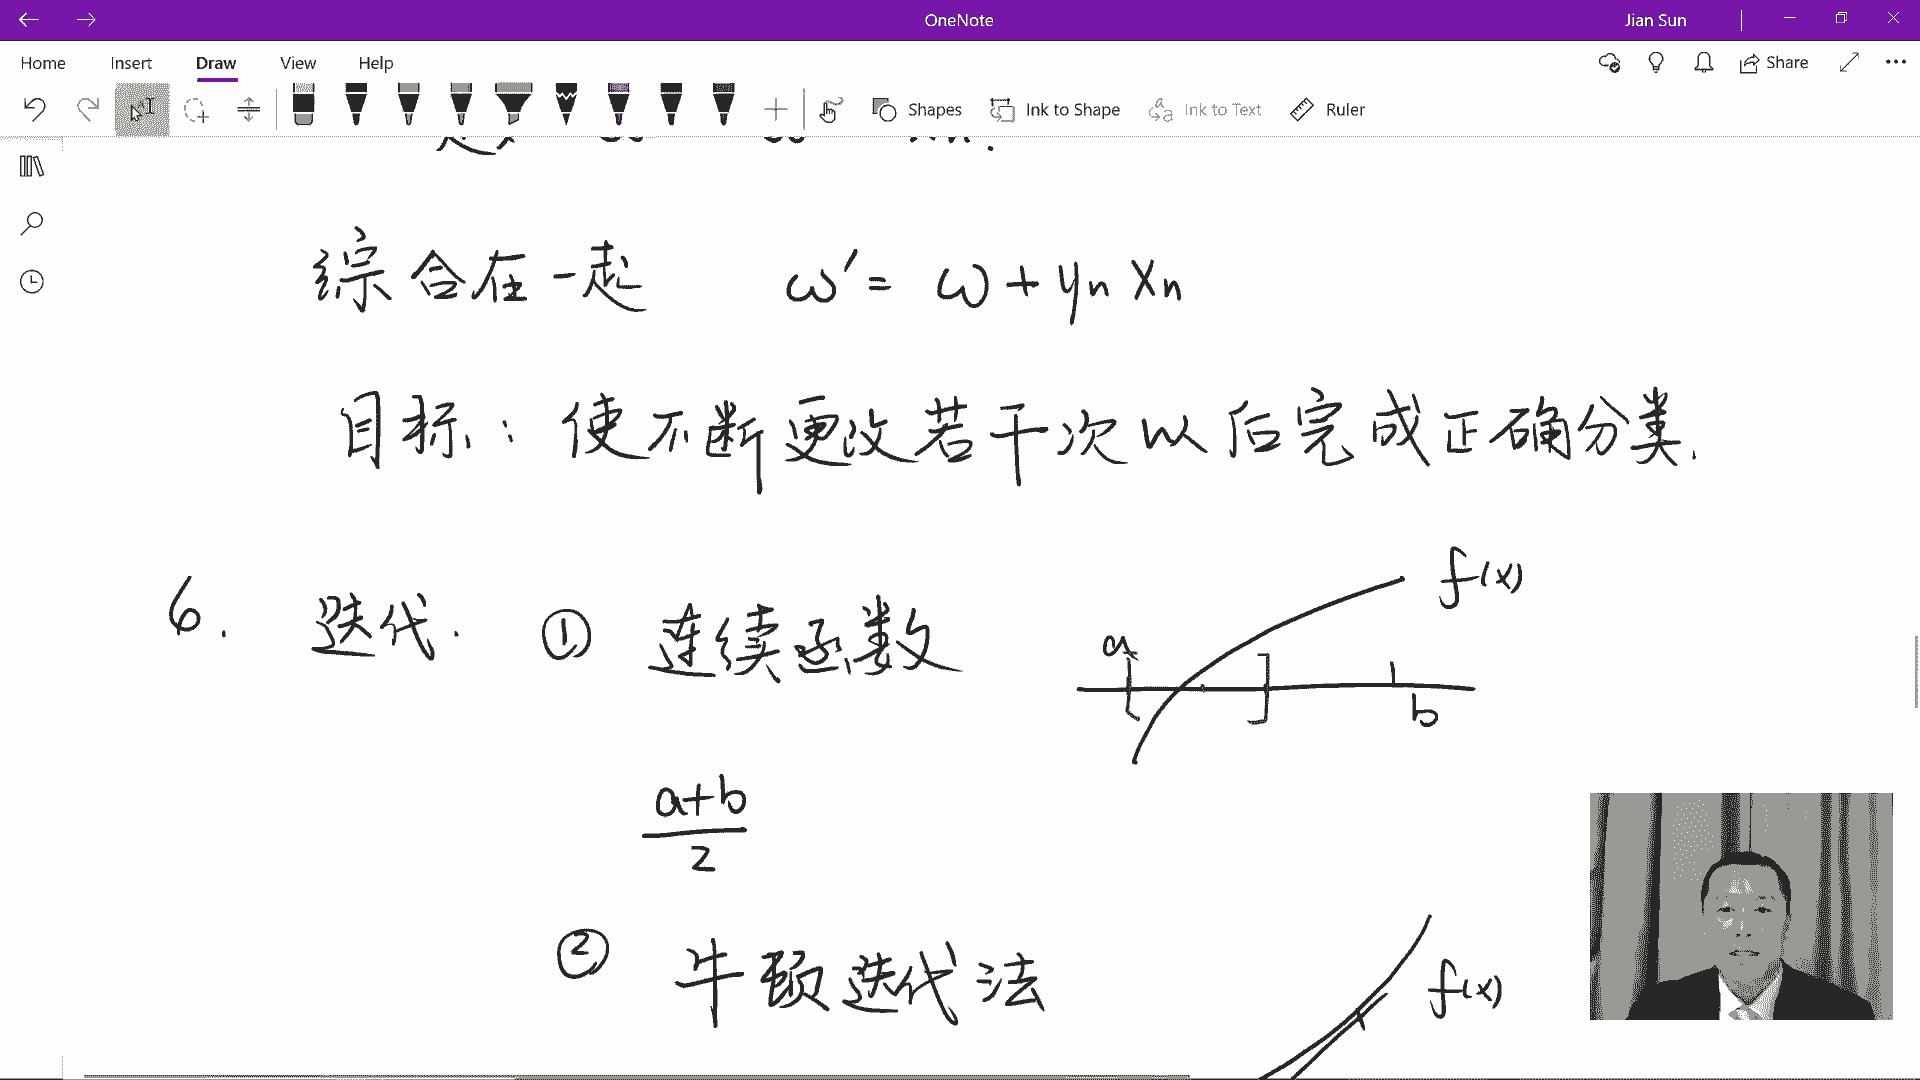 OneNote
Jian Sun
Home Insert Draw View Help
Share
Shapes Ink to Shape Ink to Text Ruler
综合在一起 ω′ = ω + yn Xn
目标: 使不断更改若干次以后完成正确分类.
6. 迭代. ① 连续函数
f(x)
a
b
a+b
2
② 牛顿迭代法
f(x)